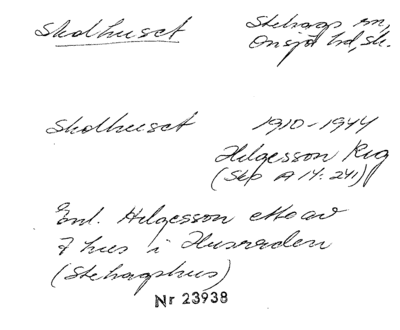 Skolhuset
Stehags sn,
Onsjö hd, Sk.
Skolhuset
1910-1944
Helgesson Reg
(Skp A 14: 241)
Enl. Helgesson ett av
7 hus i Husraden
(Stehagshus)
Nr 23938